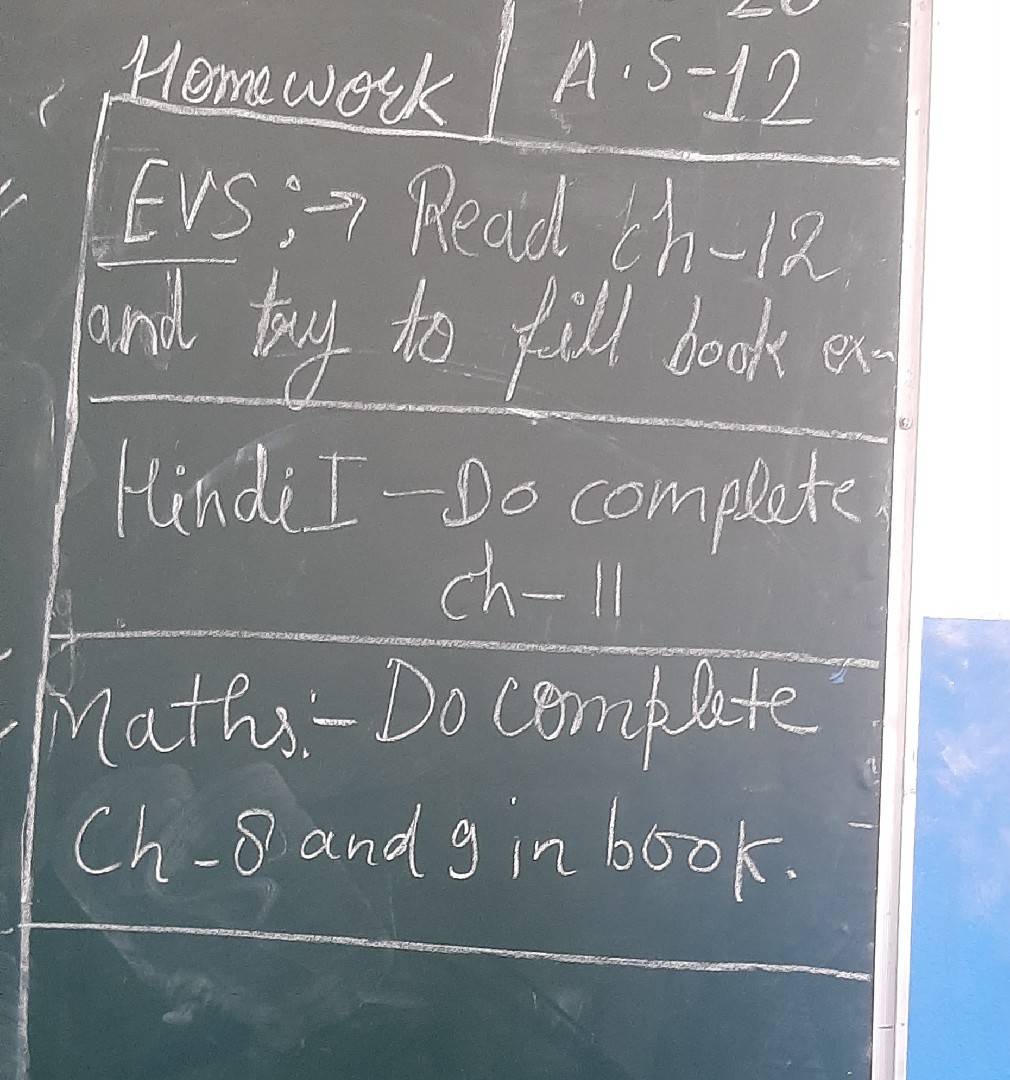 20
Homework A.S-12
EVS:→ Read ch-12
and try to fill book ex-
Hindi I - Do complete
ch-11
Maths:- Do complete
Ch-8 and 9 in book.